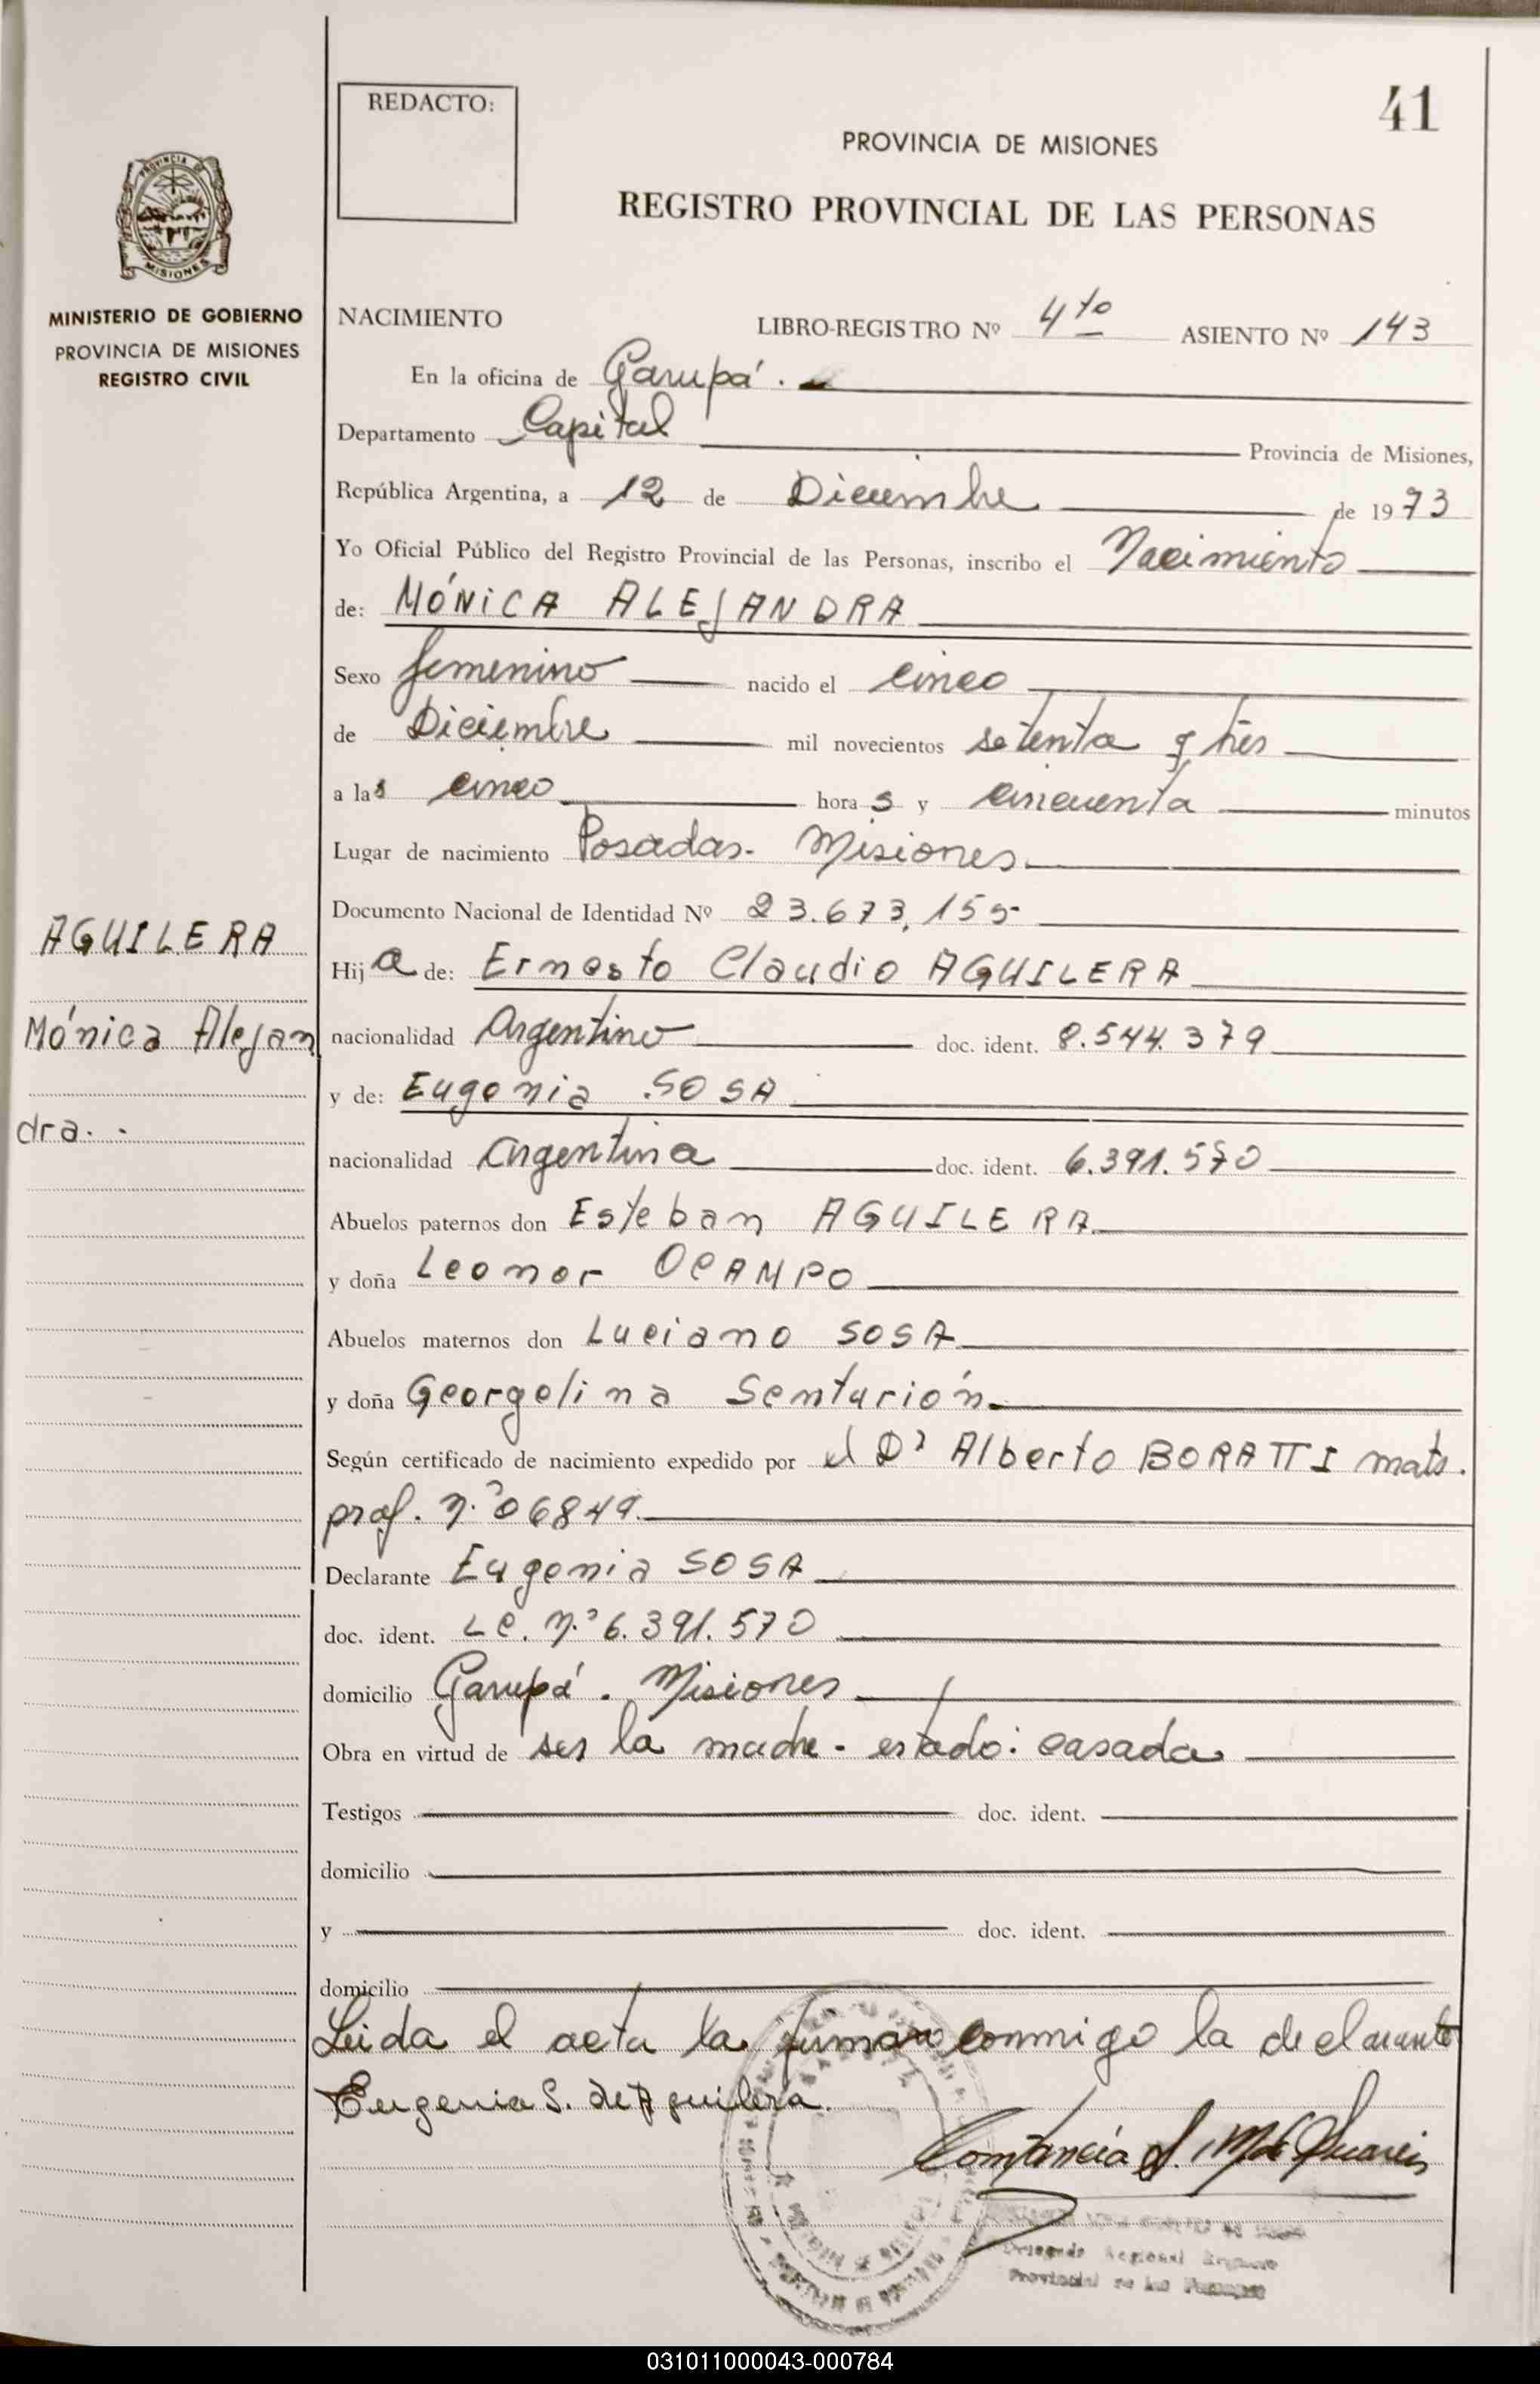 41
REDACTO:
PROVINCIA DE MISIONES
REGISTRO PROVINCIAL DE LAS PERSONAS
PROVINCIA DE
MISIONES
MINISTERIO DE GOBIERNO
PROVINCIA DE MISIONES
REGISTRO CIVIL
NACIMIENTO LIBRO-REGISTRO Nº 4to ASIENTO Nº 143
En la oficina de Garupá.
Departamento Capital Provincia de Misiones,
República Argentina, a 12 de Diciembre de 1973
Yo Oficial Público del Registro Provincial de las Personas, inscribo el Nacimiento
de: MÓNICA ALEJANDRA
Sexo femenino nacido el cinco
de Diciembre mil novecientos setenta y tres
a las cinco horas y cincuenta minutos
Lugar de nacimiento Posadas. Misiones
Documento Nacional de Identidad Nº 23.673.155
AGUILERA
Mónica Alejan
dra.
Hija de: Ernesto Claudio AGUILERA
nacionalidad Argentino doc. ident. 8.544.379
y de: Eugenia SOSA
nacionalidad Argentina doc. ident. 6.391.570
Abuelos paternos don Esteban AGUILERA
y doña Leonor OCAMPO
Abuelos maternos don Luciano SOSA
y doña Georgelina Senturión.
Según certificado de nacimiento expedido por el Dr Alberto BORATTI mats.
prof. n.º 06849.
Declarante Eugenia SOSA
doc. ident. LC. n.º 6.391.570
domicilio Garupá. Misiones
Obra en virtud de ser la madre - estado: casada
Testigos doc. ident.
domicilio
y doc. ident.
domicilio
Leida el acta la firma conmigo la declarante
Eugenia S. de Aguilera.
Constancia
Provincial de las Personas
031011000043-000784